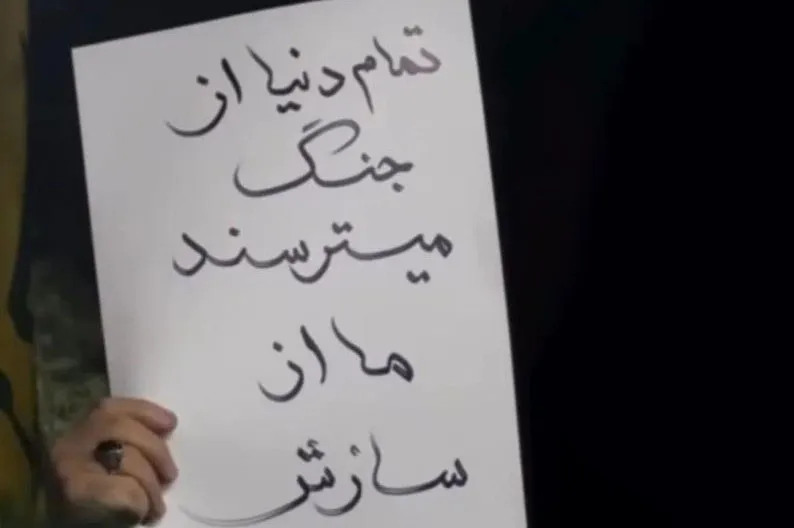 تمام دنیا از
جنگ
میترسند
ما از
سازش